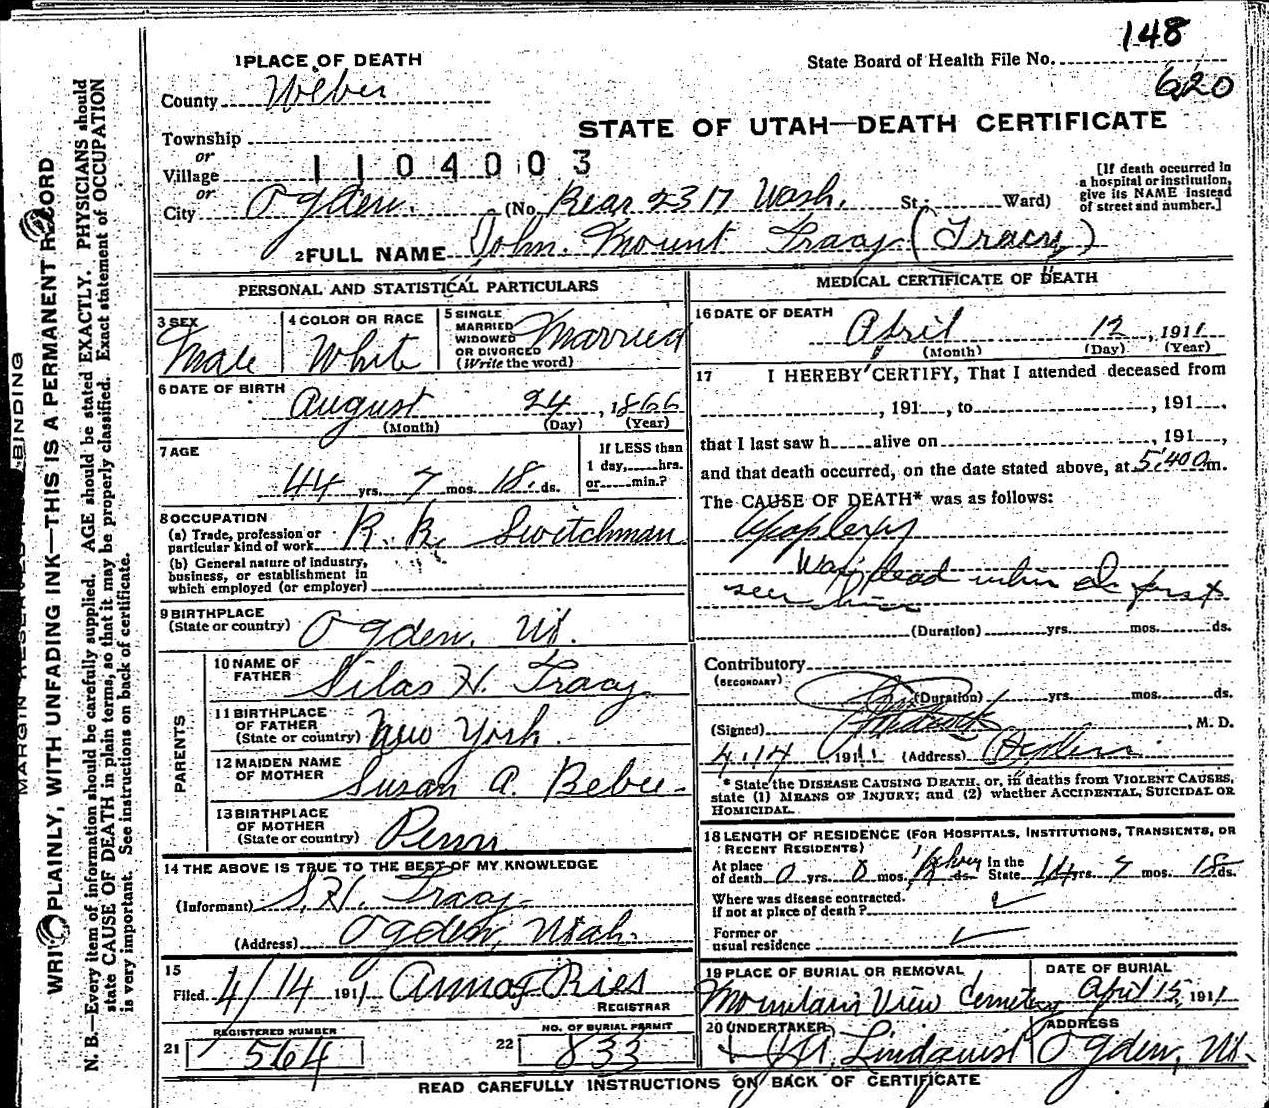 148
State Board of Health File No.
620
1 PLACE OF DEATH
County Weber
STATE OF UTAH—DEATH CERTIFICATE
Township
or
Village 1104003
or
City Ogden. (No. Rear 2317 Wash. St.; Ward)
[If death occurred in a hospital or institution, give its NAME instead of street and number.]
2 FULL NAME John. Mount Tracy (Tracy)
PERSONAL AND STATISTICAL PARTICULARS
3 SEX
Male
4 COLOR OR RACE
White
5 SINGLE
MARRIED
WIDOWED
OR DIVORCED
(Write the word)
Married
6 DATE OF BIRTH
August 24, 1866
(Month) (Day) (Year)
7 AGE
44 yrs. 7 mos. 18. ds.
If LESS than
1 day, hrs.
or min.?
8 OCCUPATION
(a) Trade, profession or
particular kind of work R. R. Switchman
(b) General nature of industry,
business, or establishment in
which employed (or employer)
9 BIRTHPLACE
(State or country) Ogden, Ut.
PARENTS
10 NAME OF
FATHER Silas H. Tracy
11 BIRTHPLACE
OF FATHER
(State or country) New York.
12 MAIDEN NAME
OF MOTHER Susan A. Bebee
13 BIRTHPLACE
OF MOTHER
(State or country) Penn
14 THE ABOVE IS TRUE TO THE BEST OF MY KNOWLEDGE
(Informant) S. H. Tracy
(Address) Ogden, Utah.
15
Filed. 4/14 1911 REGISTRAR
REGISTERED NUMBER
21 564
NO. OF BURIAL PERMIT
22 833
MEDICAL CERTIFICATE OF DEATH
16 DATE OF DEATH
April 12, 1911
(Month) (Day) (Year)
17 I HEREBY CERTIFY, That I attended deceased from
, 191 , to , 191 .
that I last saw h alive on , 191 ,
and that death occurred, on the date stated above, at 5:40 am.
The CAUSE OF DEATH* was as follows:
Apoplexy
Was dead when I first
seen him
(Duration) yrs. mos. ds.
Contributory
(SECONDARY)
(Duration) yrs. mos. ds.
(Signed) , M. D.
4/14 1911 (Address) Ogden
* State the DISEASE CAUSING DEATH, or, in deaths from VIOLENT CAUSES,
state (1) MEANS OF INJURY; and (2) whether ACCIDENTAL, SUICIDAL OR
HOMICIDAL.
18 LENGTH OF RESIDENCE (FOR HOSPITALS, INSTITUTIONS, TRANSIENTS, OR
RECENT RESIDENTS)
At place
of death 0 yrs. 0 mos. ds. In the
State 44 yrs. 7 mos. 18 ds.
Where was disease contracted.
if not at place of death?
Former or
usual residence
19 PLACE OF BURIAL OR REMOVAL
Mountain View Cemetery
DATE OF BURIAL
April 15, 1911
20 UNDERTAKER
Lindquist
ADDRESS
Ogden, Ut.
READ CAREFULLY INSTRUCTIONS ON BACK OF CERTIFICATE
MARGIN RESERVED FOR BINDING
WRITE PLAINLY, WITH UNFADING INK—THIS IS A PERMANENT RECORD
N. B.—Every item of information should be carefully supplied. AGE should be stated EXACTLY. PHYSICIANS should
state CAUSE OF DEATH in plain terms, so that it may be properly classified. Exact statement of OCCUPATION
is very important. See instructions on back of certificate.